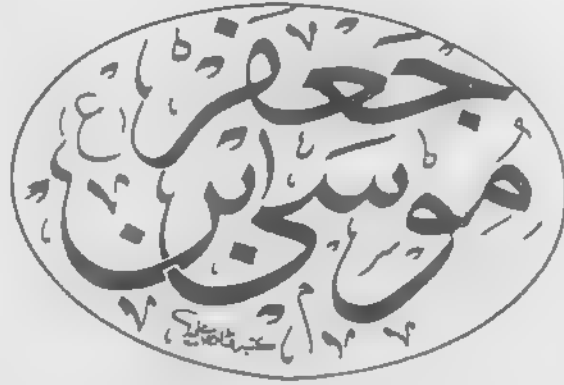 موسى ابن جعفر (ع)